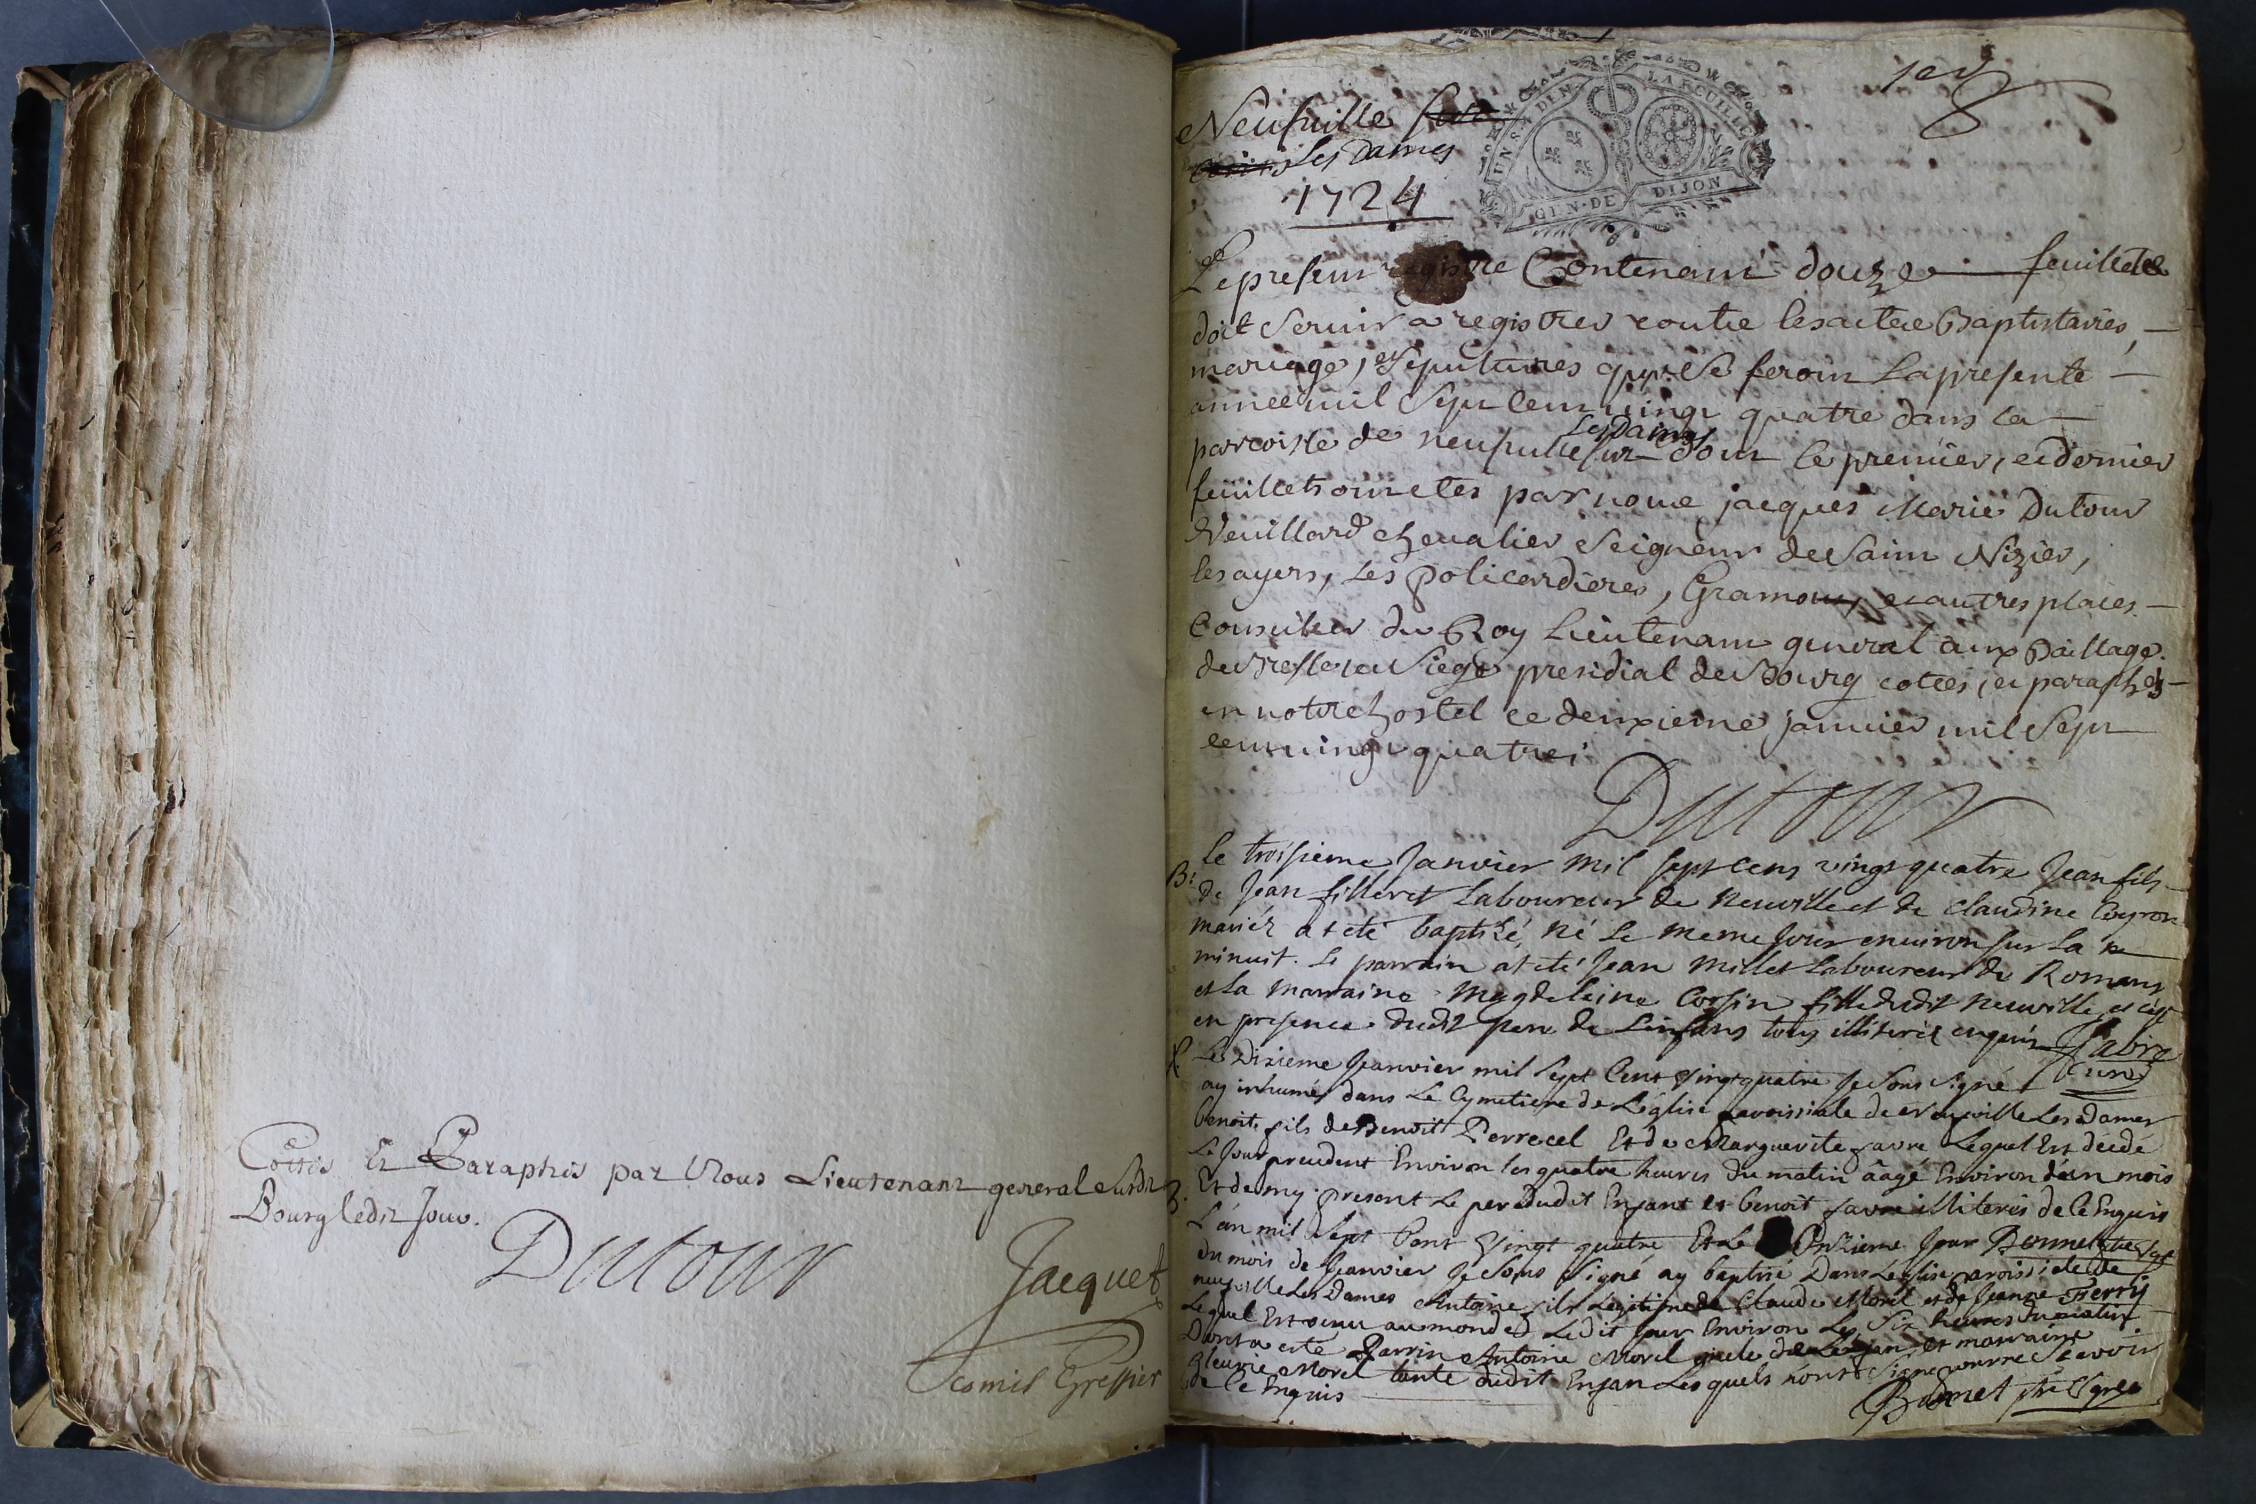 Cottés Et Paraphés par Nous Lieutenant general susdit
Bourg ledit Jour.
Dutour
Jacquet
Comis Greffier
1er
Neufuille
Les Dames
1724
UN S. & DEN. LA FEUILLE
GEN. DE DIJON
Le presem registre Contenant douze feuillets
doit seruir a registrer toutte les actes Baptistaires,
mariage, et sepultures qui se feront La presente
année mil sept cent vingt quatre dans la
Les Dames
parroisse de neufuille dont le premier, et dernier
feuillets ont etes par noue jacques Marie Dutour
Veuillard cheualier Seigneur de Saint Nizier,
les ayers, Les policardieres, Gramont, et autres places
Conseiller du Roy Lieutenant general aux Baillage
de Bresse et Siege presidial de Bourg cottés, et paraphés
en notre hostel ce deuxieme januier mil Sept
cent vingt quatre
Dutour
B:
le troisieme Janvier mil sept cens vingt quatre Jean fils
de Jean filleret Laboureur de Neuville et de Claudine
mariéz at eté baptizé, né Le meme Jour environ sur La
minuit. Le parrain at eté Jean Millet Laboureur de Romans
et La marraine Magdeleine Corsin fille dudit Neuville,
en presence dudit pere de Lenfans tous illiteréz enquis Fabre
Curé
Le Dixieme Jeanvier mil Sept Cent Vingt quatre Je Sous Signé
ay inhumé dans Le Cymetiere de Léglise paroissiale de neuville Les Dames
benoit fils de Benoitt Perrecel Et de Marguerite favre Lequel Est decedé
Le Jour precedent Environ les quatre heures du matin âagé Environ d'un mois
Et demy present Le pere dudit Enfant et benoit favre illiterés de Ce Enquis
B.
L'an mil Sept Cent Vingt quatre Et Le Onzieme Jour Bonnet
du mois de Jeanvier Je Sous Signé ay baptisé Dans Léglise paroissiale de
neufville Les Dames Antoine fils Legitime de Claude Morel et de Jeanne Ferry
Lequel Est venu au monde Ledit Jour Environ Les Six heures du matin
Duret a esté Parrin Antoine Morel et marraine
Morel tante dudit Enfan Lesquels n'ont Signé pour ne Scavoir
de Ce Enquis
Bonnet